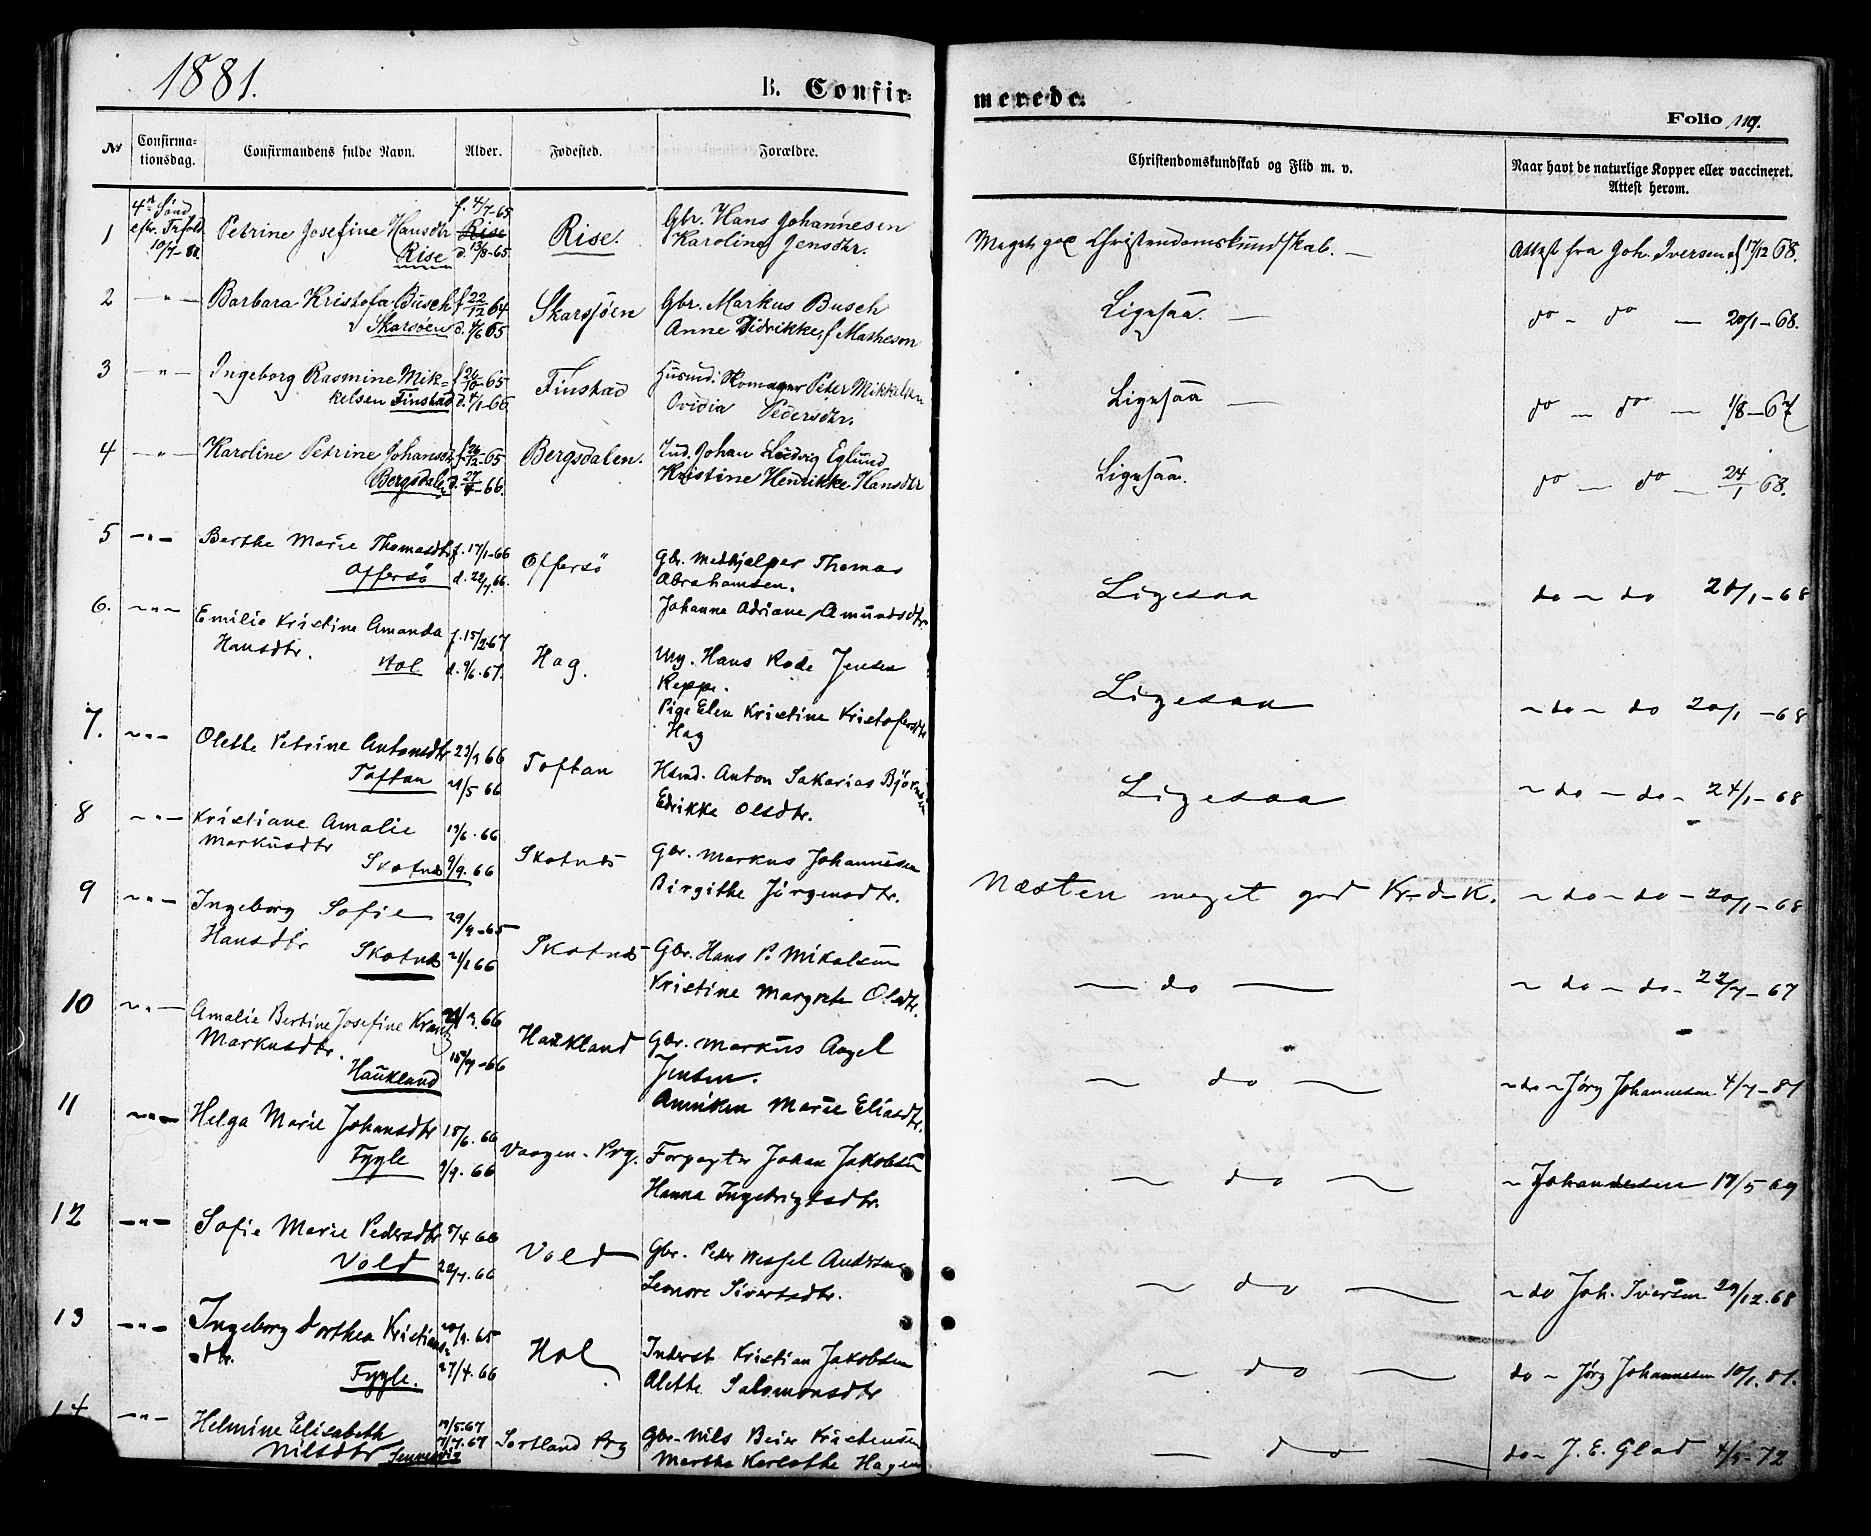 1881.
B. Confir-
merede.
Folio 119.
№
Confirma-
tionsdag.
Confirmandens fulde Navn.
Alder.
Fødested.
Forældre.
Christendomskundskab og Flid m. v.
Naar havt de naturlige Kopper eller vaccineret.
Attest herom.
1
4de Sønd
efter Trefold
10/7-81
Petrine Josefine Hansdtr
Rise
f. 4/7-65
Rise
d. 13/8-65
Rise.
Gbr. Hans Johannesen
Karoline Jensdtr.
Meget god Christendomskundskab. —
Attest fra Joh. Iversen af 17/12 68.
2
— " —
Barbara Kristofa Busch
Skarsjøen
f 22/12 64
d. 4/6 65
Skarsjøen
Gbr. Markus Busch
Anne Didrikke, f Matheson
Ligesaa. —
do - do — 20/1-68.
3
— " —
Ingeborg Rasmine Mik-
kelsen Finstad
f 26/10-65
d. 4/1-66
Finstad
Husmd. Skomager Peter Mikkelsen
Ovidia Pedersdtr.
Ligesaa —
do — do — 1/8-67
4
— " —
Karoline Petrine Johansdtr
Bergsdalen
f 26/12-65
Bergsdalen.
Ind. Johan Ludvig Eglund
Kristine Henrikke Hansdtr
Ligesaa.
do — do — 24/1 68.
5
— " —
Berthe Marie Thomasdtr
Offersö
f. 17/1-66
d. 22/7 66.
Offersö
Gbr. Medhjelper Thomas
Abrahamsen.
Johanne Adriane Amundsdtr.
Ligesaa
do ~ do 20/1-68
6.
~ " ~
Emilie Kristine Amanda
Hansdtr.
Hol
f. 15/2 67
d. 9/6.67.
Hag.
Ung. Hans Rode Jensen
Reppe.
Pige Elen Kristine Kristofersdtr
Hag
Ligesaa
~ do ~ do 20/1-68
7.
~ " ~
Olette Petrine Antonsdtr
Toftan
23/3 66
21/5 66
Toftan
Hsmd. Anton Sakarias Björnsen
Edrikke Olsdtr.
Ligesaa
~ do — do - 24/1-68
8
~ " —
Kristiane Amalie
Markusdtr
Skotnes
13/6.66
9/9.66
Skotnes
Gbr. Markus Johannesen
Birgithe Jörgensdtr.
Næsten meget god Kr-d-K.
~ do ~ do — 20/1-68
9
~ " ~
Ingeborg Sofie
Hansdtr
Skotnes
29/9-65
21/1 66
Skotnes
Gbr. Hans P. Mikalsen
Kristine Margrete Olsdtr.
— do —
~ do ~ do - 22/7-67
10
~ " —
Amalie Bertine Josefine Krantz
Markusdtr.
Haukland
21/3.66
15/7-66
Haukland
Gbr. Markus Angel
Jensen.
Anniken Marie Eliasdtr.
~ do ~
~ do ~ Jörg Johannesen 4/7-81
11
~ " —
Helga Marie Johansdtr
Fygle
15/6 66
9/9.66
Vaagen. Prg.
Forpagter Johan Jakobsen
Hanna Ingebrigtsdtr.
~ do ~
~ Johannesen 17/5 69
12
— " —
Sofie Marie Pedersdtr
Vold
5/4 66
22/7.66
Vold
Gbr. Peder Wessel Andersen
Leonore Sivertsdtr.
~ do ~
~ do Joh. Iversen 29/12.68
13
— " —
Ingeborg Dorthea Kristians-
dtr.
Fygle.
20/9.65
27/4.66
Hol
Inderst Kristian Jakobsen
Olette Salomonsdtr
~ do ~
do ~ Jörg Johannesen 10/1.81.
14
— " —
Helmine Elisabeth
Nilsdtr Sennesvik
19/5.67
7/7.67
Sortland Prg
Gbr. Nils Beier Kristensen
Marthe Karlotte Hagen
— do —
do ~ J. E. Glad 4/5-72